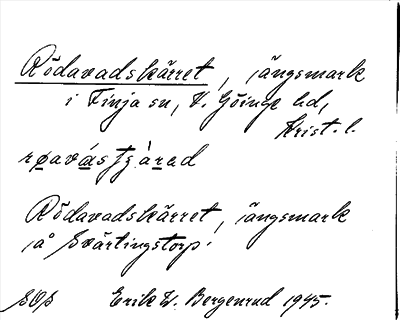 Rödavadskärret, ängsmark
i Finja sn, V. Göinge hd,
Krist. l.
Rödavadskärret, ängsmark
på Svärtingstorp.
Erik W. Bergenrud 1945.